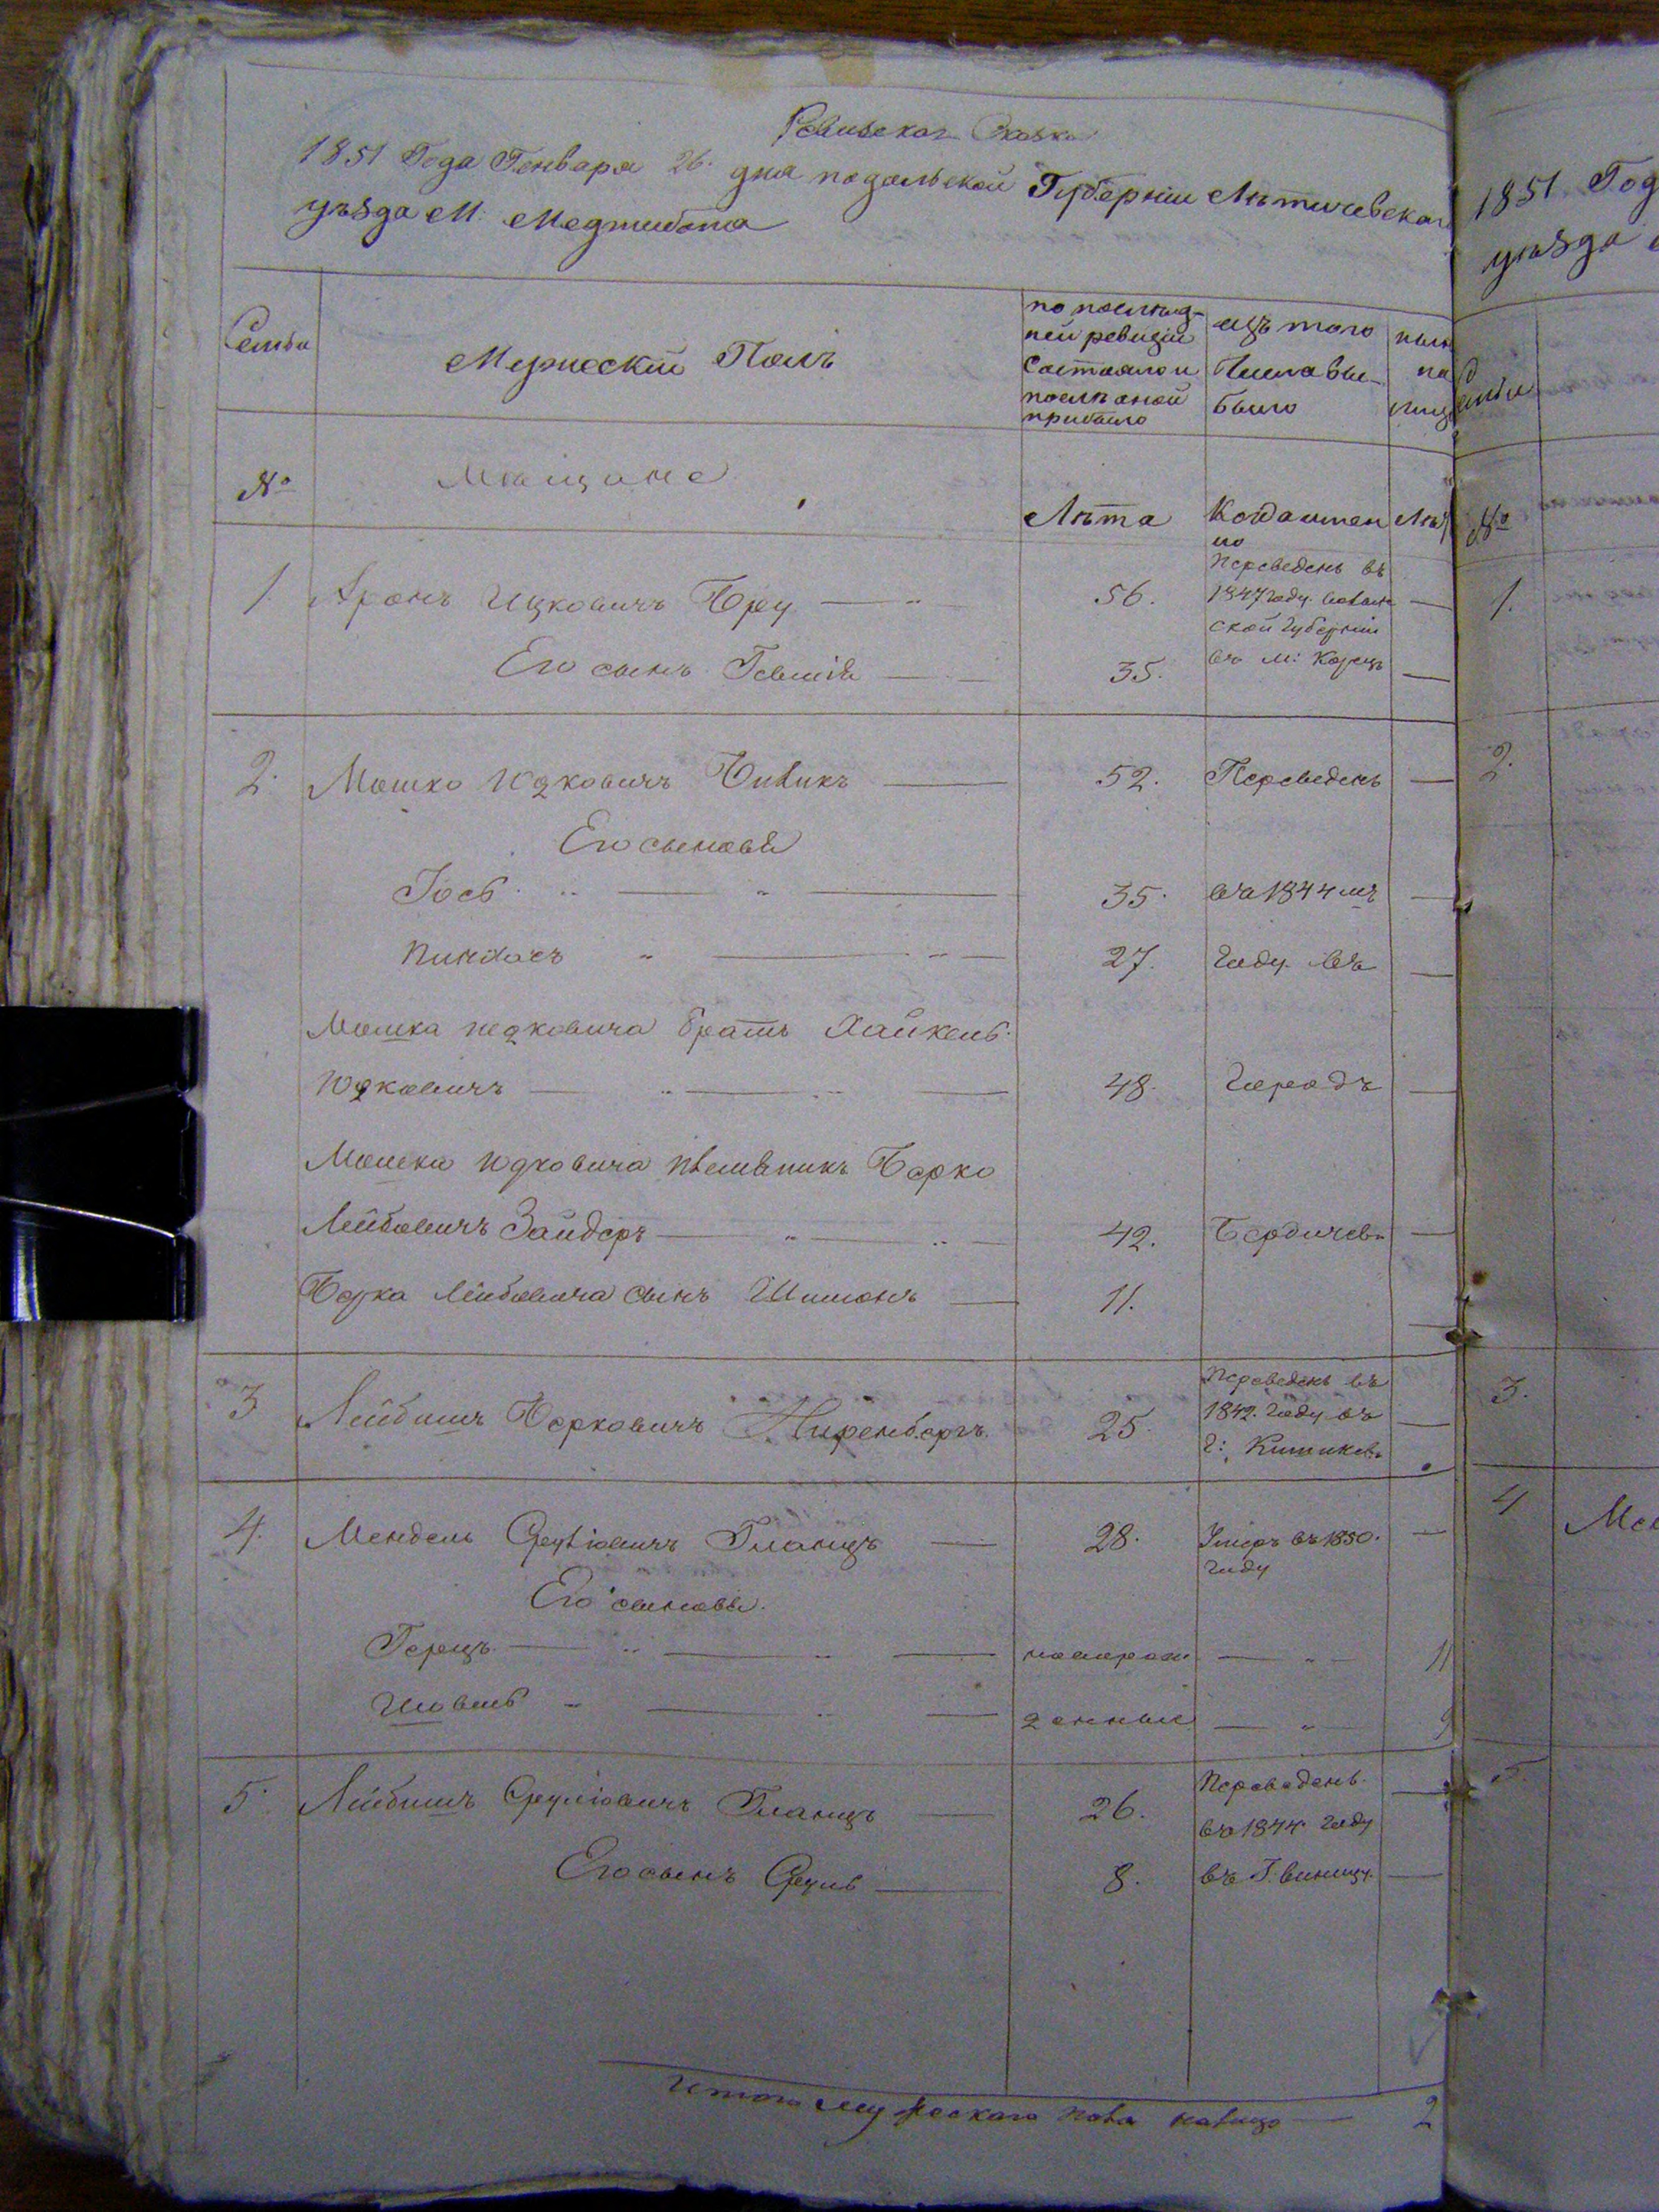 Ревизская Сказка
1851 Года Генваря 26. дня подольской Губерніи Лѣтичевскаго
уѣзда М: Меджибожа
Семьи
Мужескій Полъ
по послѣд-
ней ревизіи
состояло и
послѣ оной
прибыло
изъ того
Числа вы-
было
нынѣ
на
лицо
№
Мѣщане
Лѣта
Когда имен
но
Лѣт
1 Аронъ Ицковичъ 56. Переведенъ въ
1847 году
ской Губерніи
Его сынъ 35. въ м: Корецъ
2. Мошко Юдковичъ 52. Переведенъ
Его сыновья
Іось 35. въ 1844 мъ
Пинхасъ 27. Году въ
Мошка Юдковича братъ Хайкель
Юдковичъ 48. Городъ
Мошка Юдковича племѣникъ Берко
Лейбовичъ Зайдеръ 42. Бердичевъ
Берка Лейбовича сынъ Шимонъ 11.
3 Лейбишъ Берковичъ Ниренбергъ 25. Переведенъ въ
1842. Году въ
Г: Кишиневъ
4. Мендель Сруліовичъ Гланцъ 28. Умеръ въ 1850.
году
Его сыновья.
Герцъ новорож 11
Шовель денный 9
5. Лейбишъ Сруліовичъ Гланцъ 26. Переведенъ
въ 1844 Году
Его сынъ Сруль 8. въ Г. виницу
Итого мужескаго пола налицо 2
1851 Год
уѣзда
Семьи
№
1.
2.
3.
4 Мен
5.